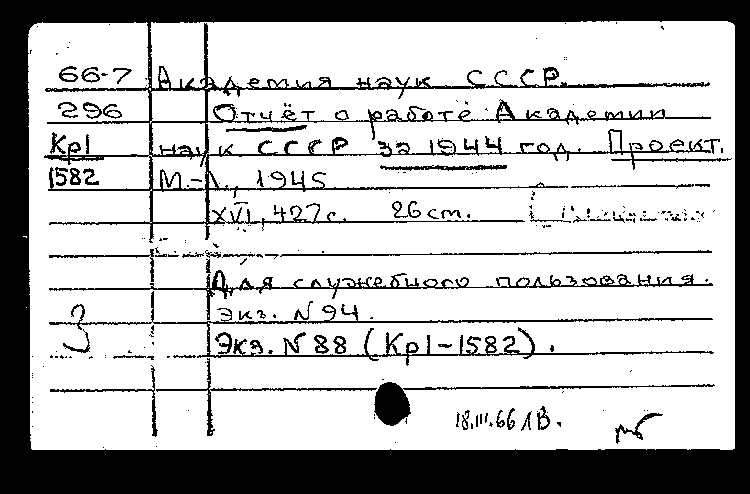 66-7 Академия наук СССР.
296 Отчёт о работе Академии
Кр1 наук СССР за 1944 год. Проект.
1582 М.-Л., 1945
XVI, 427с. 26 cm.
Для служебного пользования.
Экз. N 94.
З Экз. N 88 (Кр1-1582).
18.III.66 ЛВ.